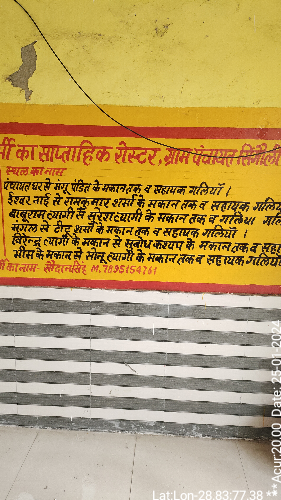 र्मी का साप्ताहिक रोस्टर, ग्राम पंचायत सिंगौली
स्थल का नाम
पंचायत घर से मंगू पंडित के मकान तक व सहायक गलियाँ ।
ईश्वर नाई से रामकुमार शर्मा के मकान तक व सहायक गलिय
बाबूराम त्यागी से सुरेश त्यागी के मकान तक व गलिया
मंगल से टीटू शर्मा के मकान तक व सहायक गलियाँ ।
विरेन्द्र त्यागी के मकान से सुबोध कश्यप के मकान तक व सहा
के मकान से सोनू त्यागी के मकान तक व सहायक गलिया
र्मी का नाम- M.7895154761
Lat:Lon-28.83:77.38
**Acur20.00 Date: 25-01-2024